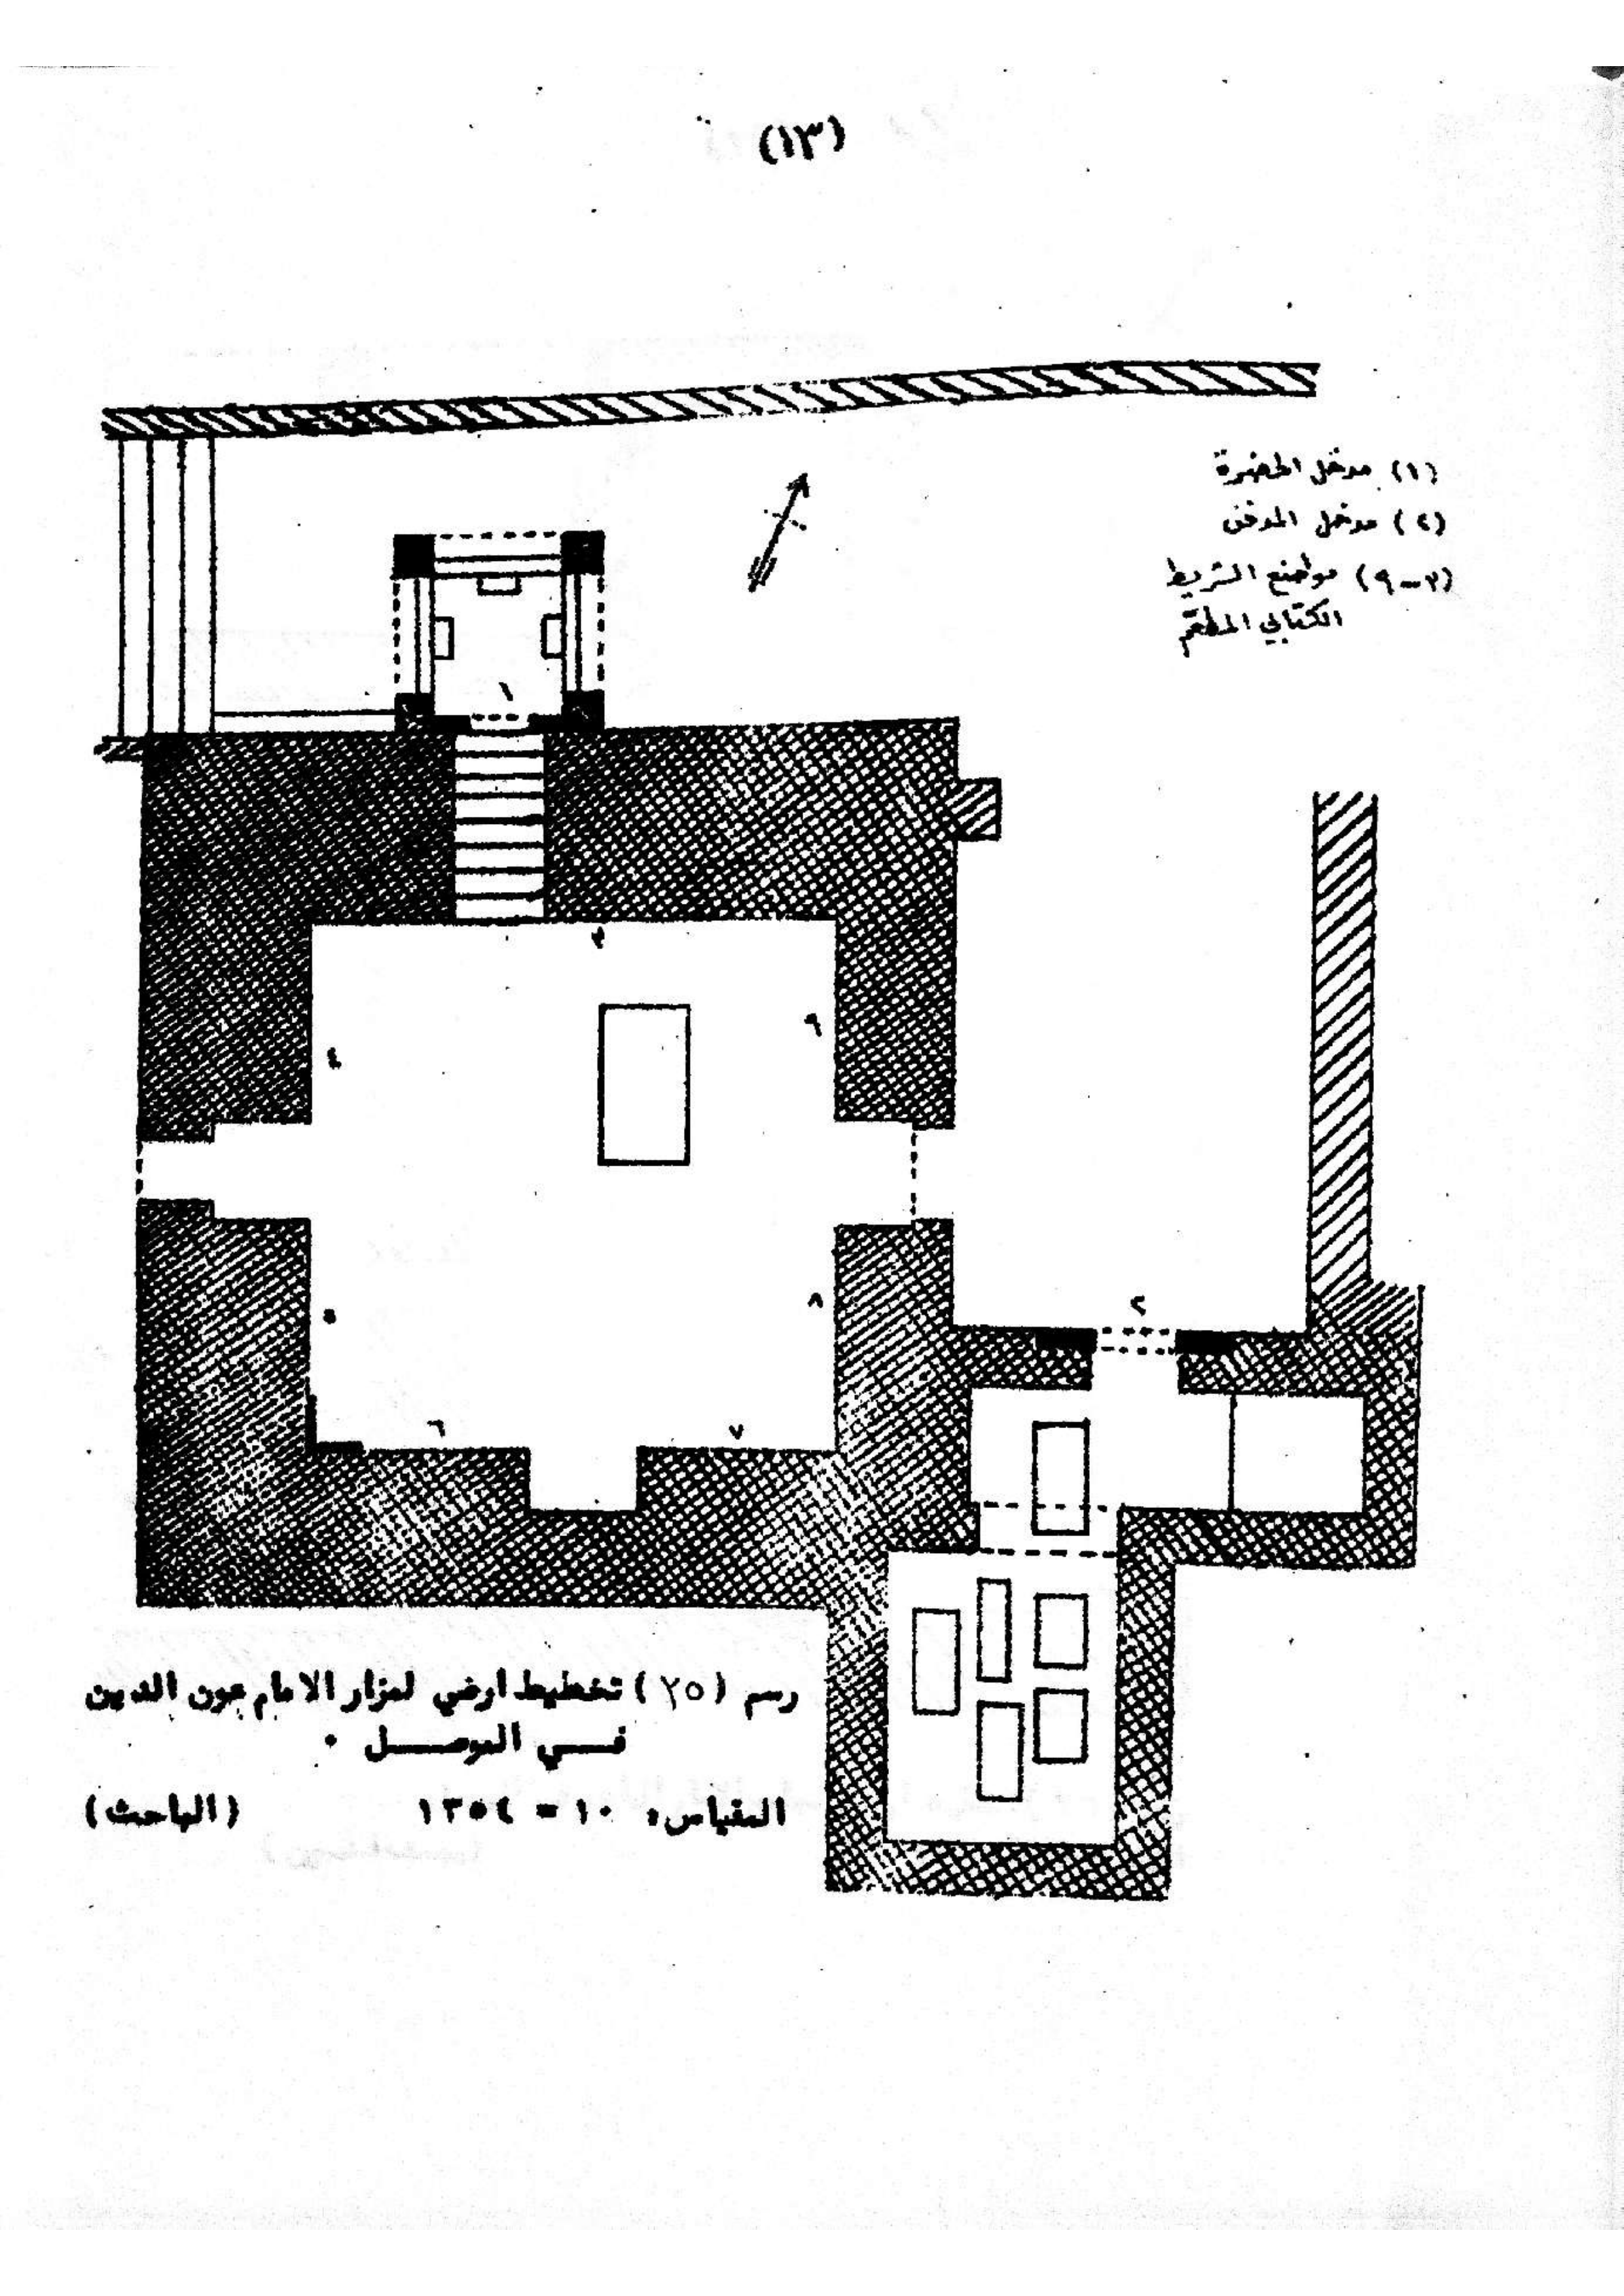 (١٣)
(١) مدخل الحضرة
(٢) مدخل المدفن
(٣-٩) مواضع الشريط
الكتابي المطعم
١
٣
٩
٤
٨
٥
٢
٦
٧
رسم (٢٥) تخطيط ارضي لمزار الامام عون الدين
فــي الموصــل ٠
المقياس: ١٠ = ١٣٥٤ (الباحث)